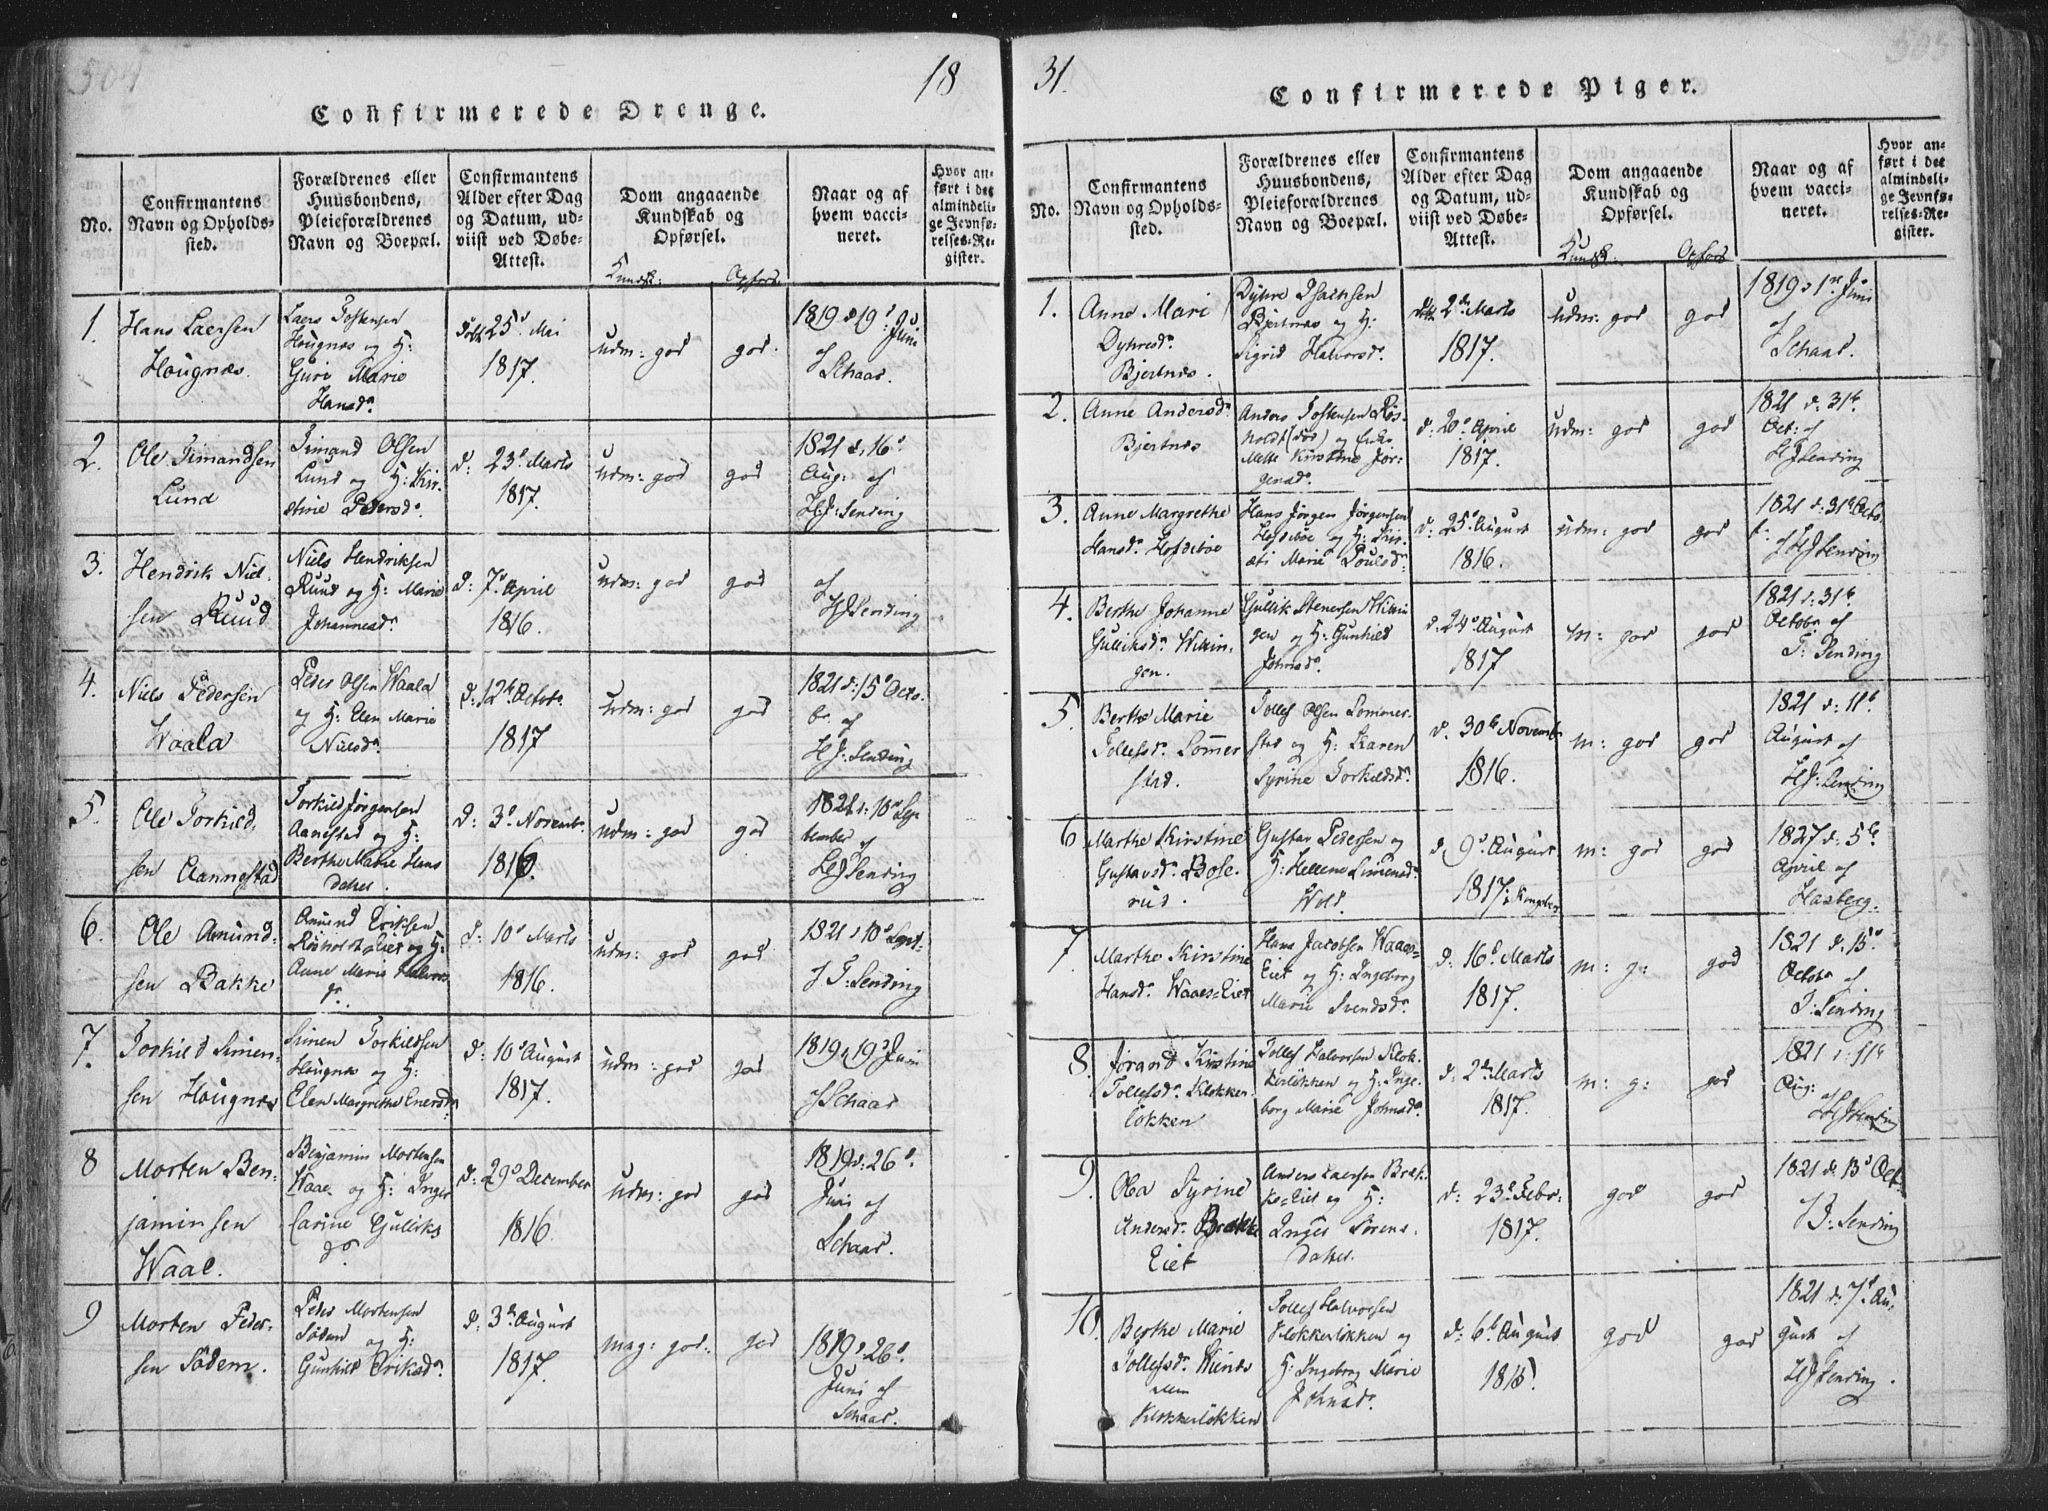 504
18
Confirmerede Drenge.
No.
Confirmantens
Navn og Opholds-
sted.
Forældrenes eller
Huusbondens,
Pleieforældrenes
Navn og Boepæl.
Confirmantens
Alder efter Dag
og Datum, ud-
viist ved Døbe-
Attest.
Dom angaaende
Kundskab og
Opførsel.
Kundsk:
Opførs.
Naar og af
hvem vacci-
neret.
Hvor an-
ført i det
almindeli-
ge Jevnfø-
relses-Re-
gister.
1.
Hans Laersen
Hougnæs.
Laers Tostensen
Hougnæs og H:
Guri Marie
Hansd.
25 Mai
1817.
udm: god
god.
1819 d 19
Juni
af Schaar.
2.
Ole Timandsen
Lund
Timand Olsen
Lund og H: Kir-
stine Pedersd.
d: 23 Marts
1817.
udm: god
god
1821 d: 16
Aug: af
HJ: Sending
3.
Hendrik Niel-
sen Ruud
Niels Hendriksen
Ruud og H: Marie
Johannesd.
d: 7 April
1816.
udm: god
god
af
HJ Sending
4.
Niels Pedersen
Waala
Peder Olsen Waala
og H: Elen Marie
Nielsd.
d: 12 Octobr
1817
udm: god
god
1821 d: 15 Octo-
br. af
HJ: Sending
5.
Ole Torkild-
sen Aannestad
Torkild Jörgensen
Aanestad og H:
Berthe Marie Hans
datter.
d: 3 Novembr.
1816.
udm: god
god
1821 d: 10 Sep
tember af
HJ Sending
6.
Ole Amund-
sen Bakke
Amund Eriksen
Røsholdt Eiet og H:
Anne Marie Halvors
d.
d: 10 Marts
1816.
udm: god
god
1821 d 10 Sept-
af J: Sending
7.
Torkild Simen-
sen Hougnæs
Simen Torkildsen
Hougnæs og H:
Elen Margrethe Enersd.
d: 10 August
1817.
udm: god
god
1819 d 19 Juni
af Schaar
8
Morten Ben-
jaminsen
Waal.
Benjamin Mortensen
Waal og H: Inger
Carine Gulliks
d.
d: 29 December
1816
udm: god
god
1819 d: 26.
Juni af
Schaar.
9
Morten Peder-
sen Sødem.
Peder Mortensen
Sødem og H:
Gunhild Eriksd.
d: 3 August
1817.
mag: god.
god
1819 d 26.
Juni af
Schaar.
505
31.
Confirmerede Piger.
No.
Confirmantens
Navn og Opholds-
sted.
Forældrenes eller
Huusbondens,
Pleieforældrenes
Navn og Boepæl.
Confirmantens
Alder efter Dag
og Datum, ud-
viist ved Døbe-
Attest.
Dom angaaende
Kundskab og
Opførsel.
Kundsk:
Opførs
Naar og af
hvem vacci-
neret.
Hvor an-
ført i det
almindeli-
ge Jevnfø-
relses-Re-
gister.
1.
Anne Mari
Dyhresd.
Bjertnæs.
Dyhre Isachsen
Bjertnæs og H:
Sigrid Halvorsd.
2 Marts
1817.
udm: god
god
1819 d 1 Juni
af Schaar.
2.
Anne Andersd.
Bjertnæs
Anders Tostensen Røs-
holdt (død) og Enke
Mette Kirstine Jør-
gensd.
d: 20 April
1817.
udm: god
god
1821 d: 31
Oct: af
HJ Sending
3.
Anne Margrethe
Hansd. Hofdeböe
Hans Jørgen Jørgensen
Hofdeböe og H:
Marie Poulsd.
d: 25 August
1816.
udm: god
god
1821 d: 31 Octo
br. af HJ Sending
4.
Berthe Johanne
Gulliksd. Wikin-
gen.
Gullik Stenersen Wikin
gen og H: Gunhild
Johnsd.
d: 24 August
1817
m: god
god
1821 d: 31.
Octobr af
J: Sending
5
Berthe Marie
Tollefsd. Sommer
stad.
Tollef Olsen Sommer-
stad og H: Karen
Syrine Torkildsd.
d. 30 Novembr
1816.
m: god
god
1821 d: 11
August af
HJ: Sending
6
Marthe Kirstine
Gustavsd. Bose-
rud.
Gustav Pedersen og
H: Hellene Simensd.
Wold.
d 9 August
1817:
m: god
god
1827 d: 5
April af
Hasberg.
7
Marthe Kirstine
Hansd. Waaes=Eiet
Hans Jacobsen Waaes-
Eiet og H: Ingeborg
Marie Svendsd.
d: 16 Marts
1817.
m: g:
god
1821 d. 15
Octobr af
J: Sending
8.
Jorand Kirstine
Tollefsd. Klokker
løkken
Tollef Halvorsen Klok-
kerløkken og H: Inge-
borg Marie Johnsd.
d: 2 Marts
1817.
m: g:
god
1821 d: 11
Aug: af
HJ Sending
9.
Olea Syrine
Andersd. Brække
Eiet
Anders Laersen Bræk-
ke=Eiet og H:
Inger Sørens-
datter.
d: 23 Febr:
1817.
god
god
1821 d. 13 Oct.
af J: Sending
10.
Berthe Marie
Tollefsd.
Klokkerløkken
Tollef Halvorsen
Klokkerløkken og
H: Ingeborg Marie
Johnsd.
d: 6 August
1815.
god
god
1821 d. 7 Au-
gust af
HJ Sending.